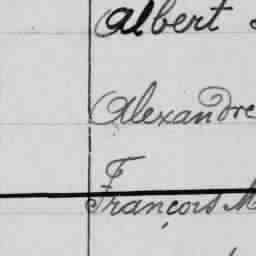 Albert
Alexandre
François M